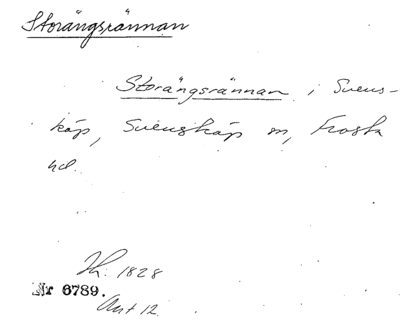 Storängsrännan
Storängsrännan i Svens-
köp, Svensköp sn, Frosta
hd.
Th. 1828
Nr 6789.
Ant 12